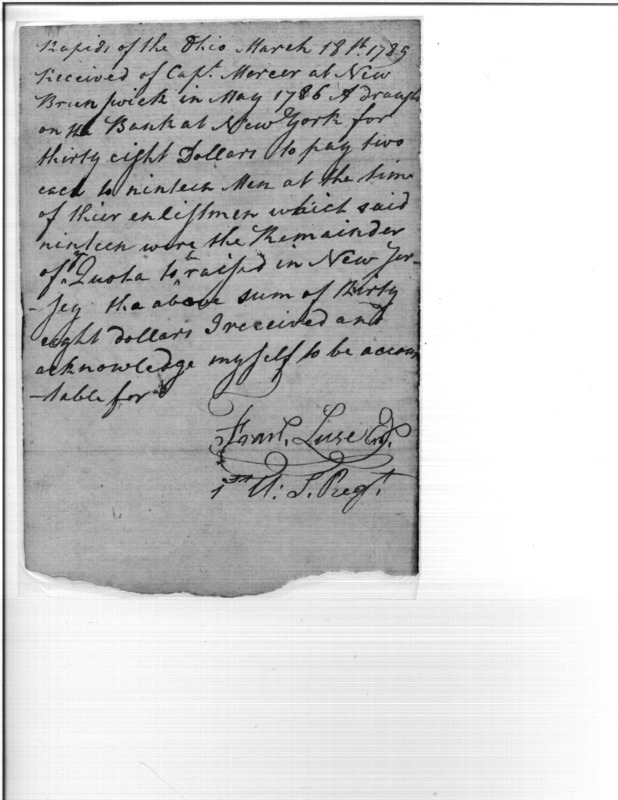 Rapids of the Ohio March 18th. 1789
Received of Capt. Mercer at New
Brunswick in May 1786 A draught
on the Bank at New York for
thirty eight Dollars to pay two
each to ninteen Men at the time
of thier enlistmen which said
ninteen were the Remainder
of ye Quota to be raised in New Jer-
-sey tha above sum of thirty
eight dollars I received and
acknowledge myself to be accoun
-table for
Fran. Luse Ens.
1st U: S. Regt.